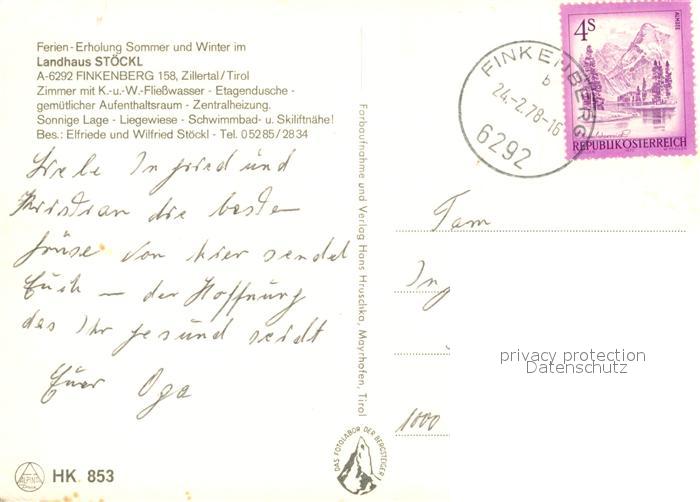 Ferien-Erholung Sommer und Winter im
Landhaus STÖCKL
A-6292 FINKENBERG 158, Zillertal/Tirol
Zimmer mit K.-u.-W.-Fließwasser - Etagendusche -
gemütlicher Aufenthaltsraum - Zentralheizung.
Sonnige Lage - Liegewiese - Schwimmbad- u. Skiliftnähe!
Bes.: Elfriede und Wilfried Stöckl - Tel. 05285/2834
Liebe Ingried und
Kristian die besten
Grüse von hier sendet
Euch — der Hoffnung
das Ihr gesund seidt
Euer Oga
HK 853
Farbaufnahme und Verlag Hans Hruschka, Mayrhofen, Tirol
DAS FOTOLABOR DER BERGSTEIGER
FINKENBERG
b
24.-2.78-16
6292
4S
ALMSEE
REPUBLIK ÖSTERREICH
Fam
Ing
1000
privacy protection
Datenschutz